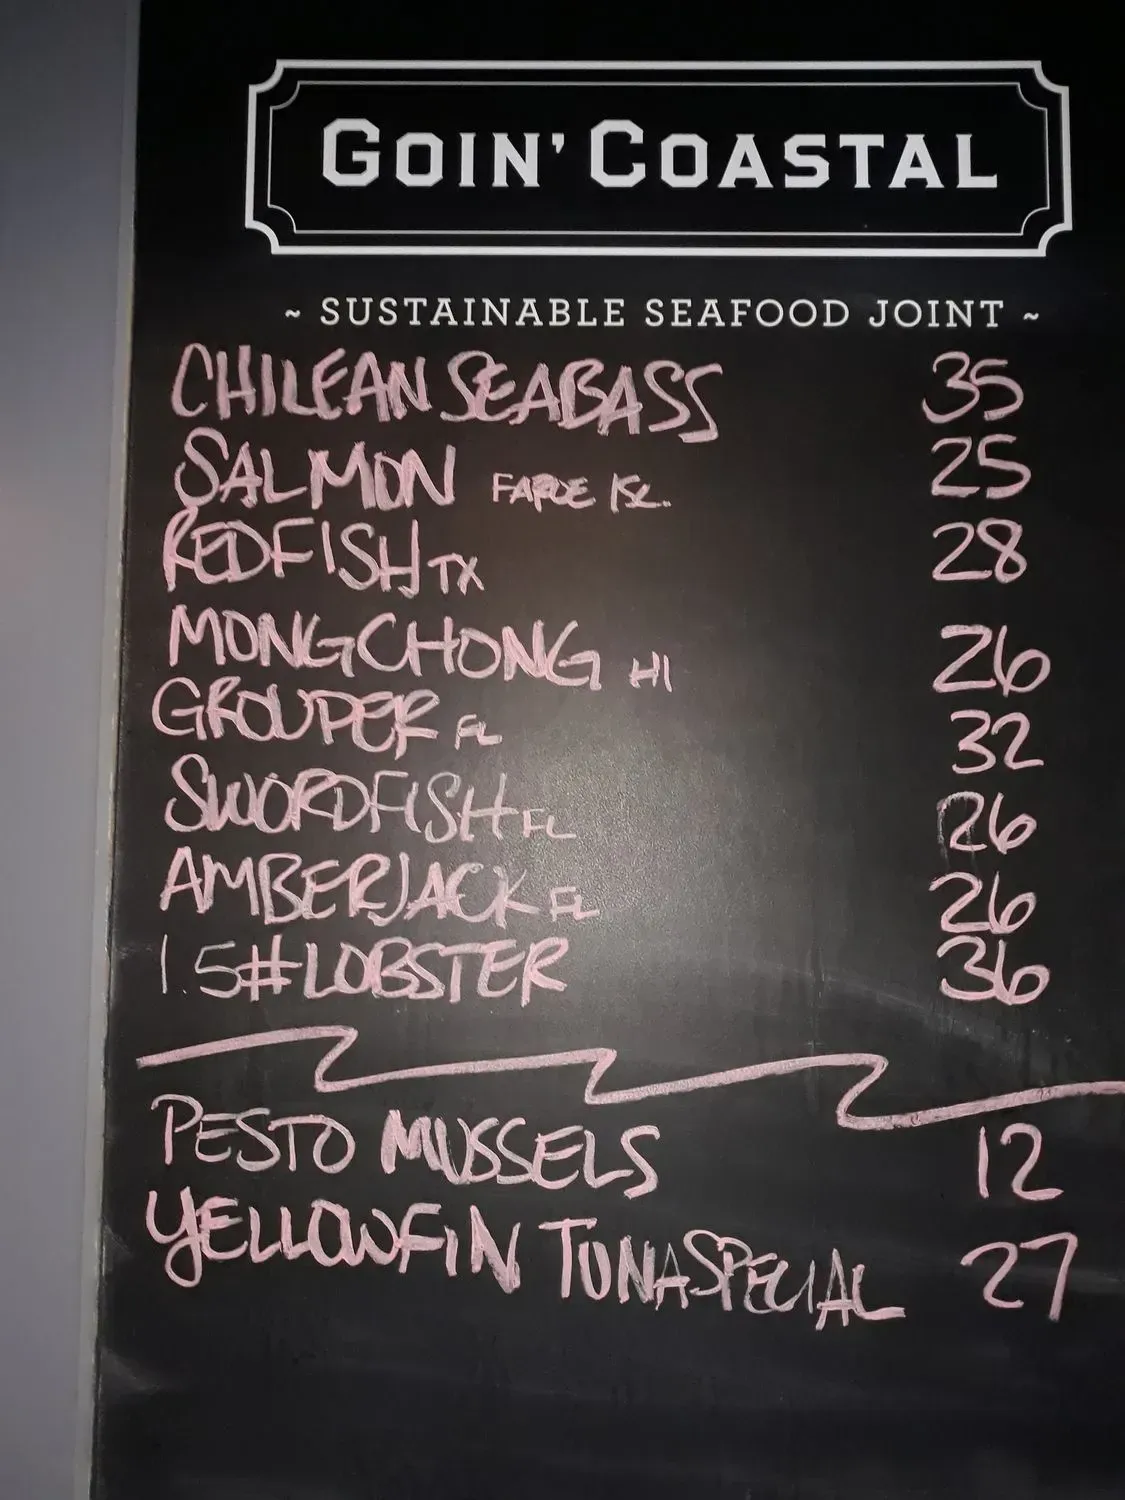 GOIN' COASTAL
~ SUSTAINABLE SEAFOOD JOINT ~
CHILEAN SEABASS 35
SALMON FAROE ISL. 25
REDFISH TX 28
MONGCHONG HI 26
GROUPER FL 32
SWORDFISH FL 26
AMBERJACK FL 26
1.5# LOBSTER 36
PESTO MUSSELS 12
YELLOWFIN TUNA SPECIAL 27